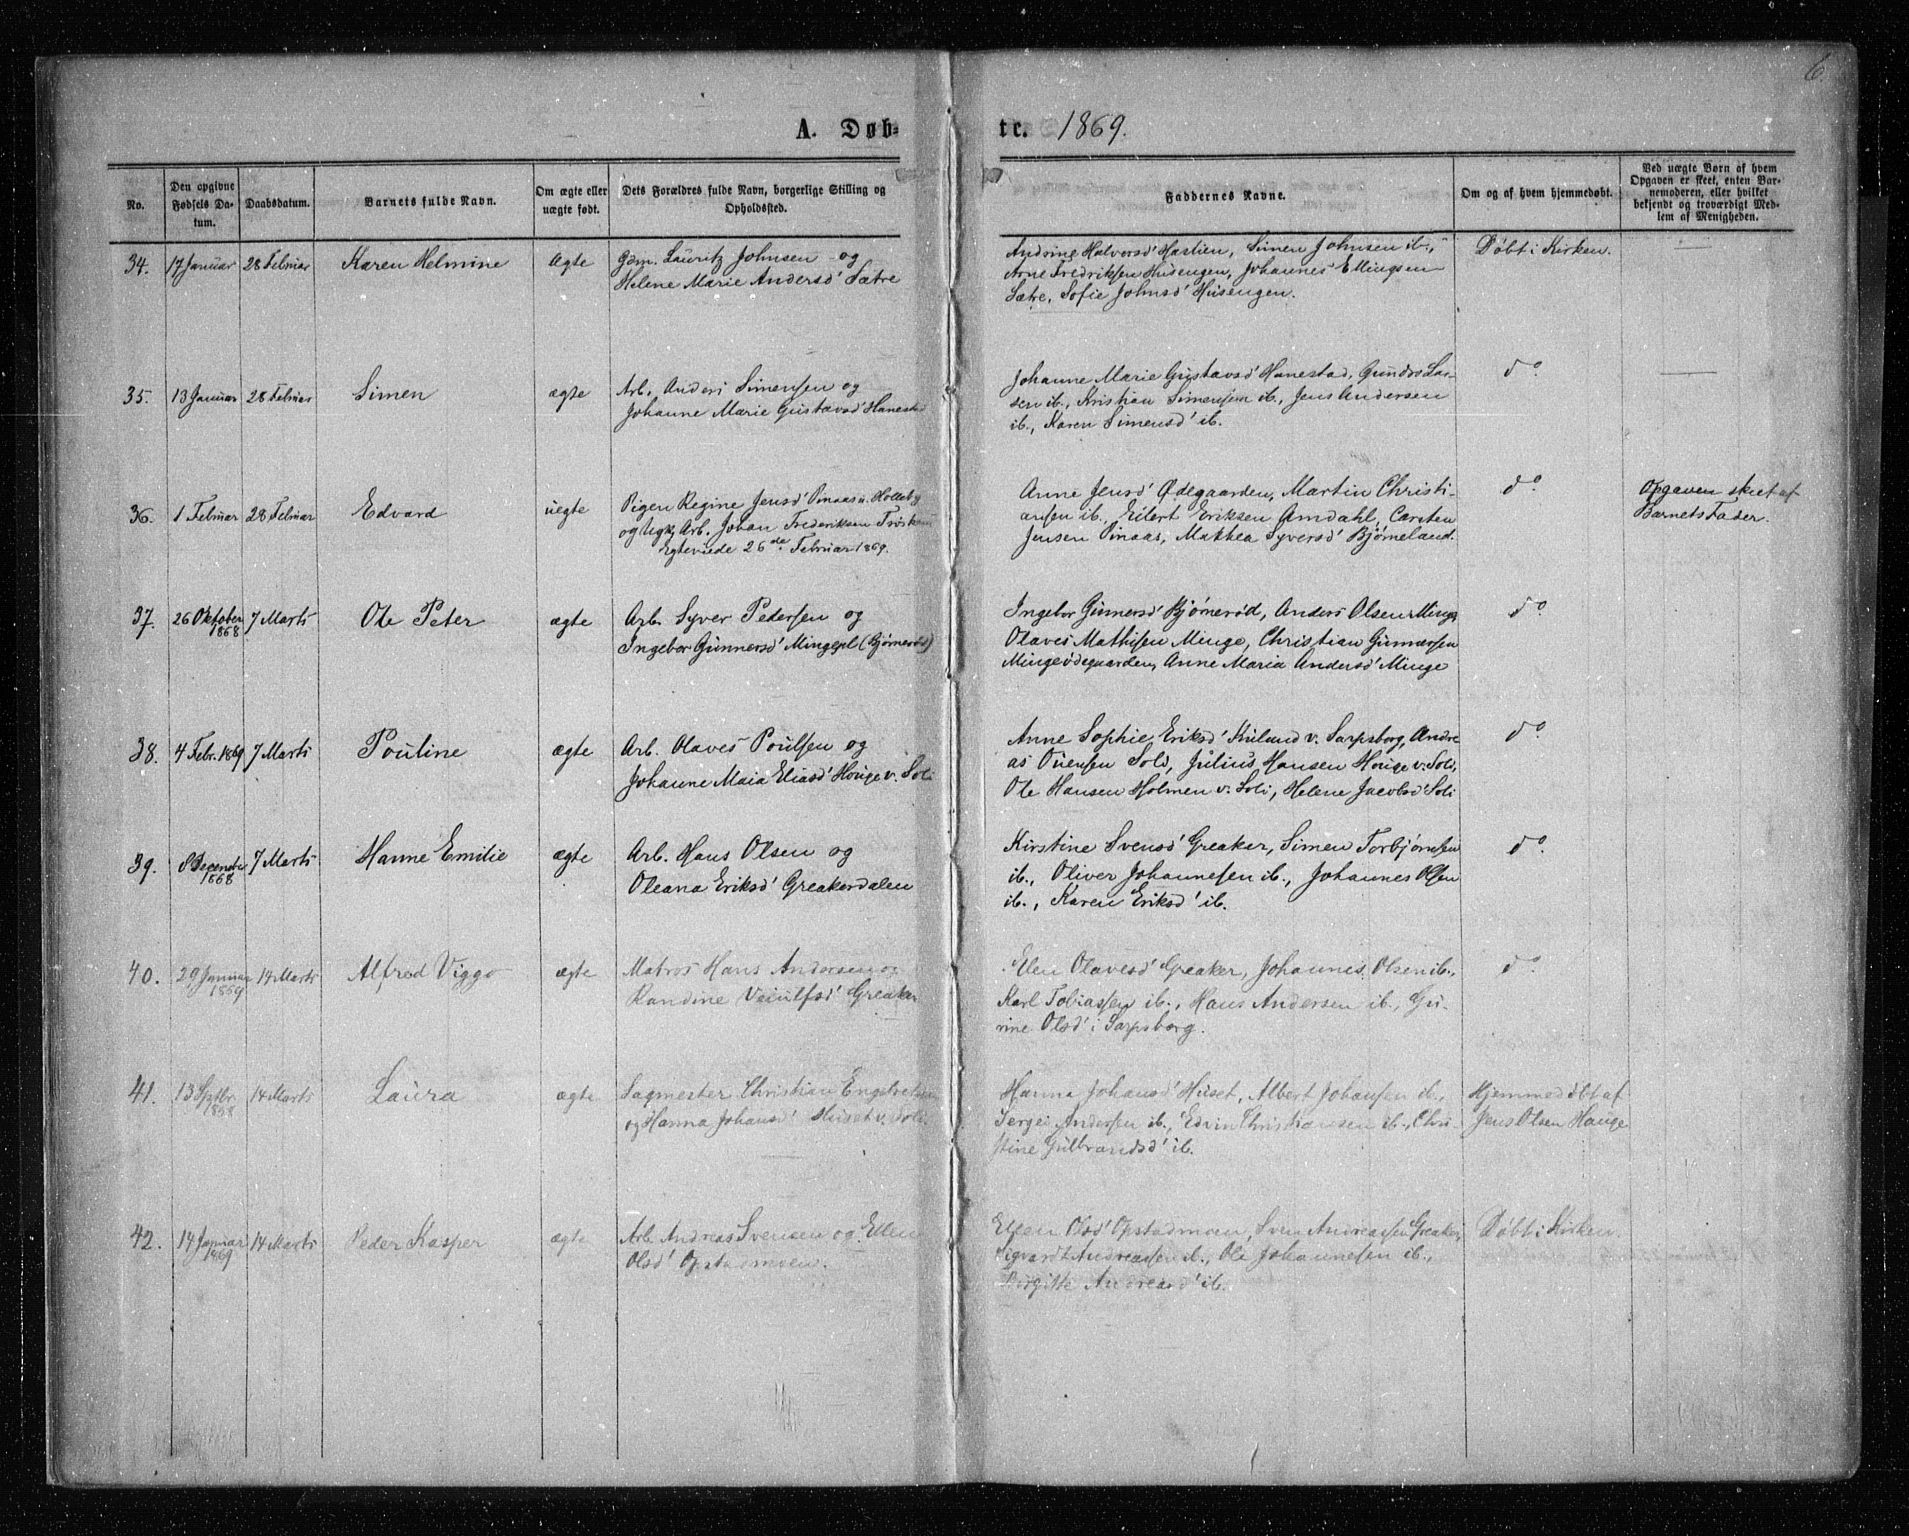 6.
A. Døb-
te. 1869.
No.
Den opgivne
Fødsels Da-
tum.
Daabsdatum.
Barnets fulde Navn.
Om ægte eller
uægte født.
Dets Forældres fulde Navn, borgerlige Stilling og
Opholdssted.
Faddernes Navne.
Om og af hvem hjemmedøbt.
Ved uægte Børn af hvem
Opgaven er skeet, enten Bar-
nemoderen, eller hvilket
bekjendt og troværdigt Med-
lem af Menigheden.
34. 17 Januar 28 Februar Karen Helmine ægte Gdm. Lauritz Johnsen og
Helene Marie Andersd' Sætre
Andrine Halvorsd' Hastien, Simen Johnsen ib.,
Arne Fredriksen Husengen, Johannes Ellingsen
Sætre, Sofie Johnsd' Husengen.
Døbt i Kirken.
35. 13 Januar 28 Februar Simen ægte Arb. Anders Simensen og
Johanne Marie Gustavsd' Hanestad
Johanne Marie Gustavsd' Hanestad, Gundro Lar-
sen ib., Kristian Simensen ib., Jens Andersen
ib., Karen Simensd' ib.
do.
36. 1 Februar 28 Februar Edvard uegte Pigen Regine Jensd' Pinaas u. Holleby
og Ugk. Arb. Johan Frederiksen
Egteviede 26de Februar 1869.
Anne Jensd' Ødegaarden, Martin Christi-
ansen ib., Eilert Eriksen Amdahl, Carsten
Jensen Pinaas, Mathea Syversd' Bjørneland.
do.
Opgaven skeet af
Barnets Fader.
37. 26 Oktober 1868 7 Marts Ole Peter ægte Arb. Syver Pedersen og
Ingebor Gunnersd' Mingepl. (Bjørnerød)
Ingebor Gunnersd' Bjørnerød, Anders Olsen Minge
Olaves Mathisen Minge, Christian Gunnersen
Mingeødegaarden, Anne Maria Andersd' Minge
do.
38. 4 Febr. 1869 7 Marts Pouline ægte Arb. Olaves Poulsen og
Johanne Maia Eliasd' Houge v. Soli
Anne Sophie Eriksd' Kulund v. Sarpsborg, Andre
as Ouensen Soli, Julius Hansen Houge v. Soli,
Ole Hansen Holmen v. Soli, Helene Jacobsd' Soli
do.
39. 8 December 1868 7 Marts Hanne Emilie ægte Arb. Hans Olsen og
Oleana Eriksd' Greakerdalen
Kirstine Svensd' Greaker, Simen Torbjørnsen
ib., Oliver Johannesen ib., Johannes Olsen
ib., Karen Eriksd' ib.
do.
40. 29 Januar 1869 14 Marts Alfred Viggo ægte Matros Hans Andersen og
Randine Veiulfsd' Greaker
Elen Olavesd' Greaker, Johannes Olsen ib.,
Karl Tobiassen ib., Hans Andersen ib., Gu-
rine Olsd' i Sarpsborg.
do.
41. 13 Septbr. 1868 14 Marts Laura ægte Sagmester Christian Engebretsen
og Hanna Johansd' Huset v. Soli
Hanna Johansd' Huset, Albert Johansen ib.,
Sergei Andersen ib., Edvin Christiansen ib., Chri-
stine Gulbrandsd' ib.
Hjemmedøbt af
Jens Olsen Houge
42. 14 Januar 1869 14 Marts Peder Kasper ægte Arb. Andreas Svensen og Ellen
Olsd' Opstadmoen.
Ellen Olsd' Opstadmoen, Sven Andreassen Greaker,
Sigvardt Andreassen ib., Ole Johannesen ib.,
Birgitte Andreasd' ib.
Døbt i Kirken.